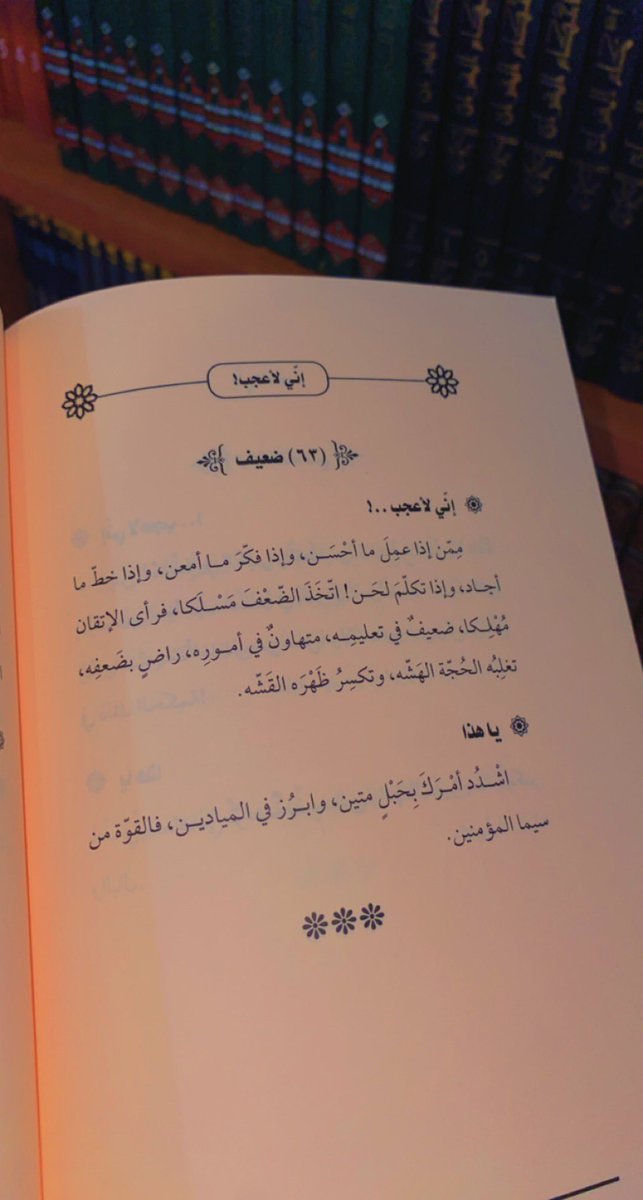 إنّي لأعجب!
(٦٣) ضعيف
إنّي لأعجب..!
مِمّن إذا عمِلَ ما أحْسَـن، وإذا فكّرَ مـا أمعن، وإذا خطّ ما
أجـاد، وإذا تكلّمَ لحَـن! اتّخَذَ الضّعْفَ مَسْـلَكا، فرأى الإتقان
مُهْلِـكا، ضعيفٌ في تعليمِـه، متهاونٌ في أمـورِه، راضٍ بضَعفِه،
تغلِبُه الحُجّة الهَشّه، وتكسِرُ ظَهْرَه القَشّه.
يا هذا
اشْـدُد أمْـرَكَ بِحَبْلٍ متين، وابـرُز في الميادين، فالقوّة من
سيما المؤمنين.